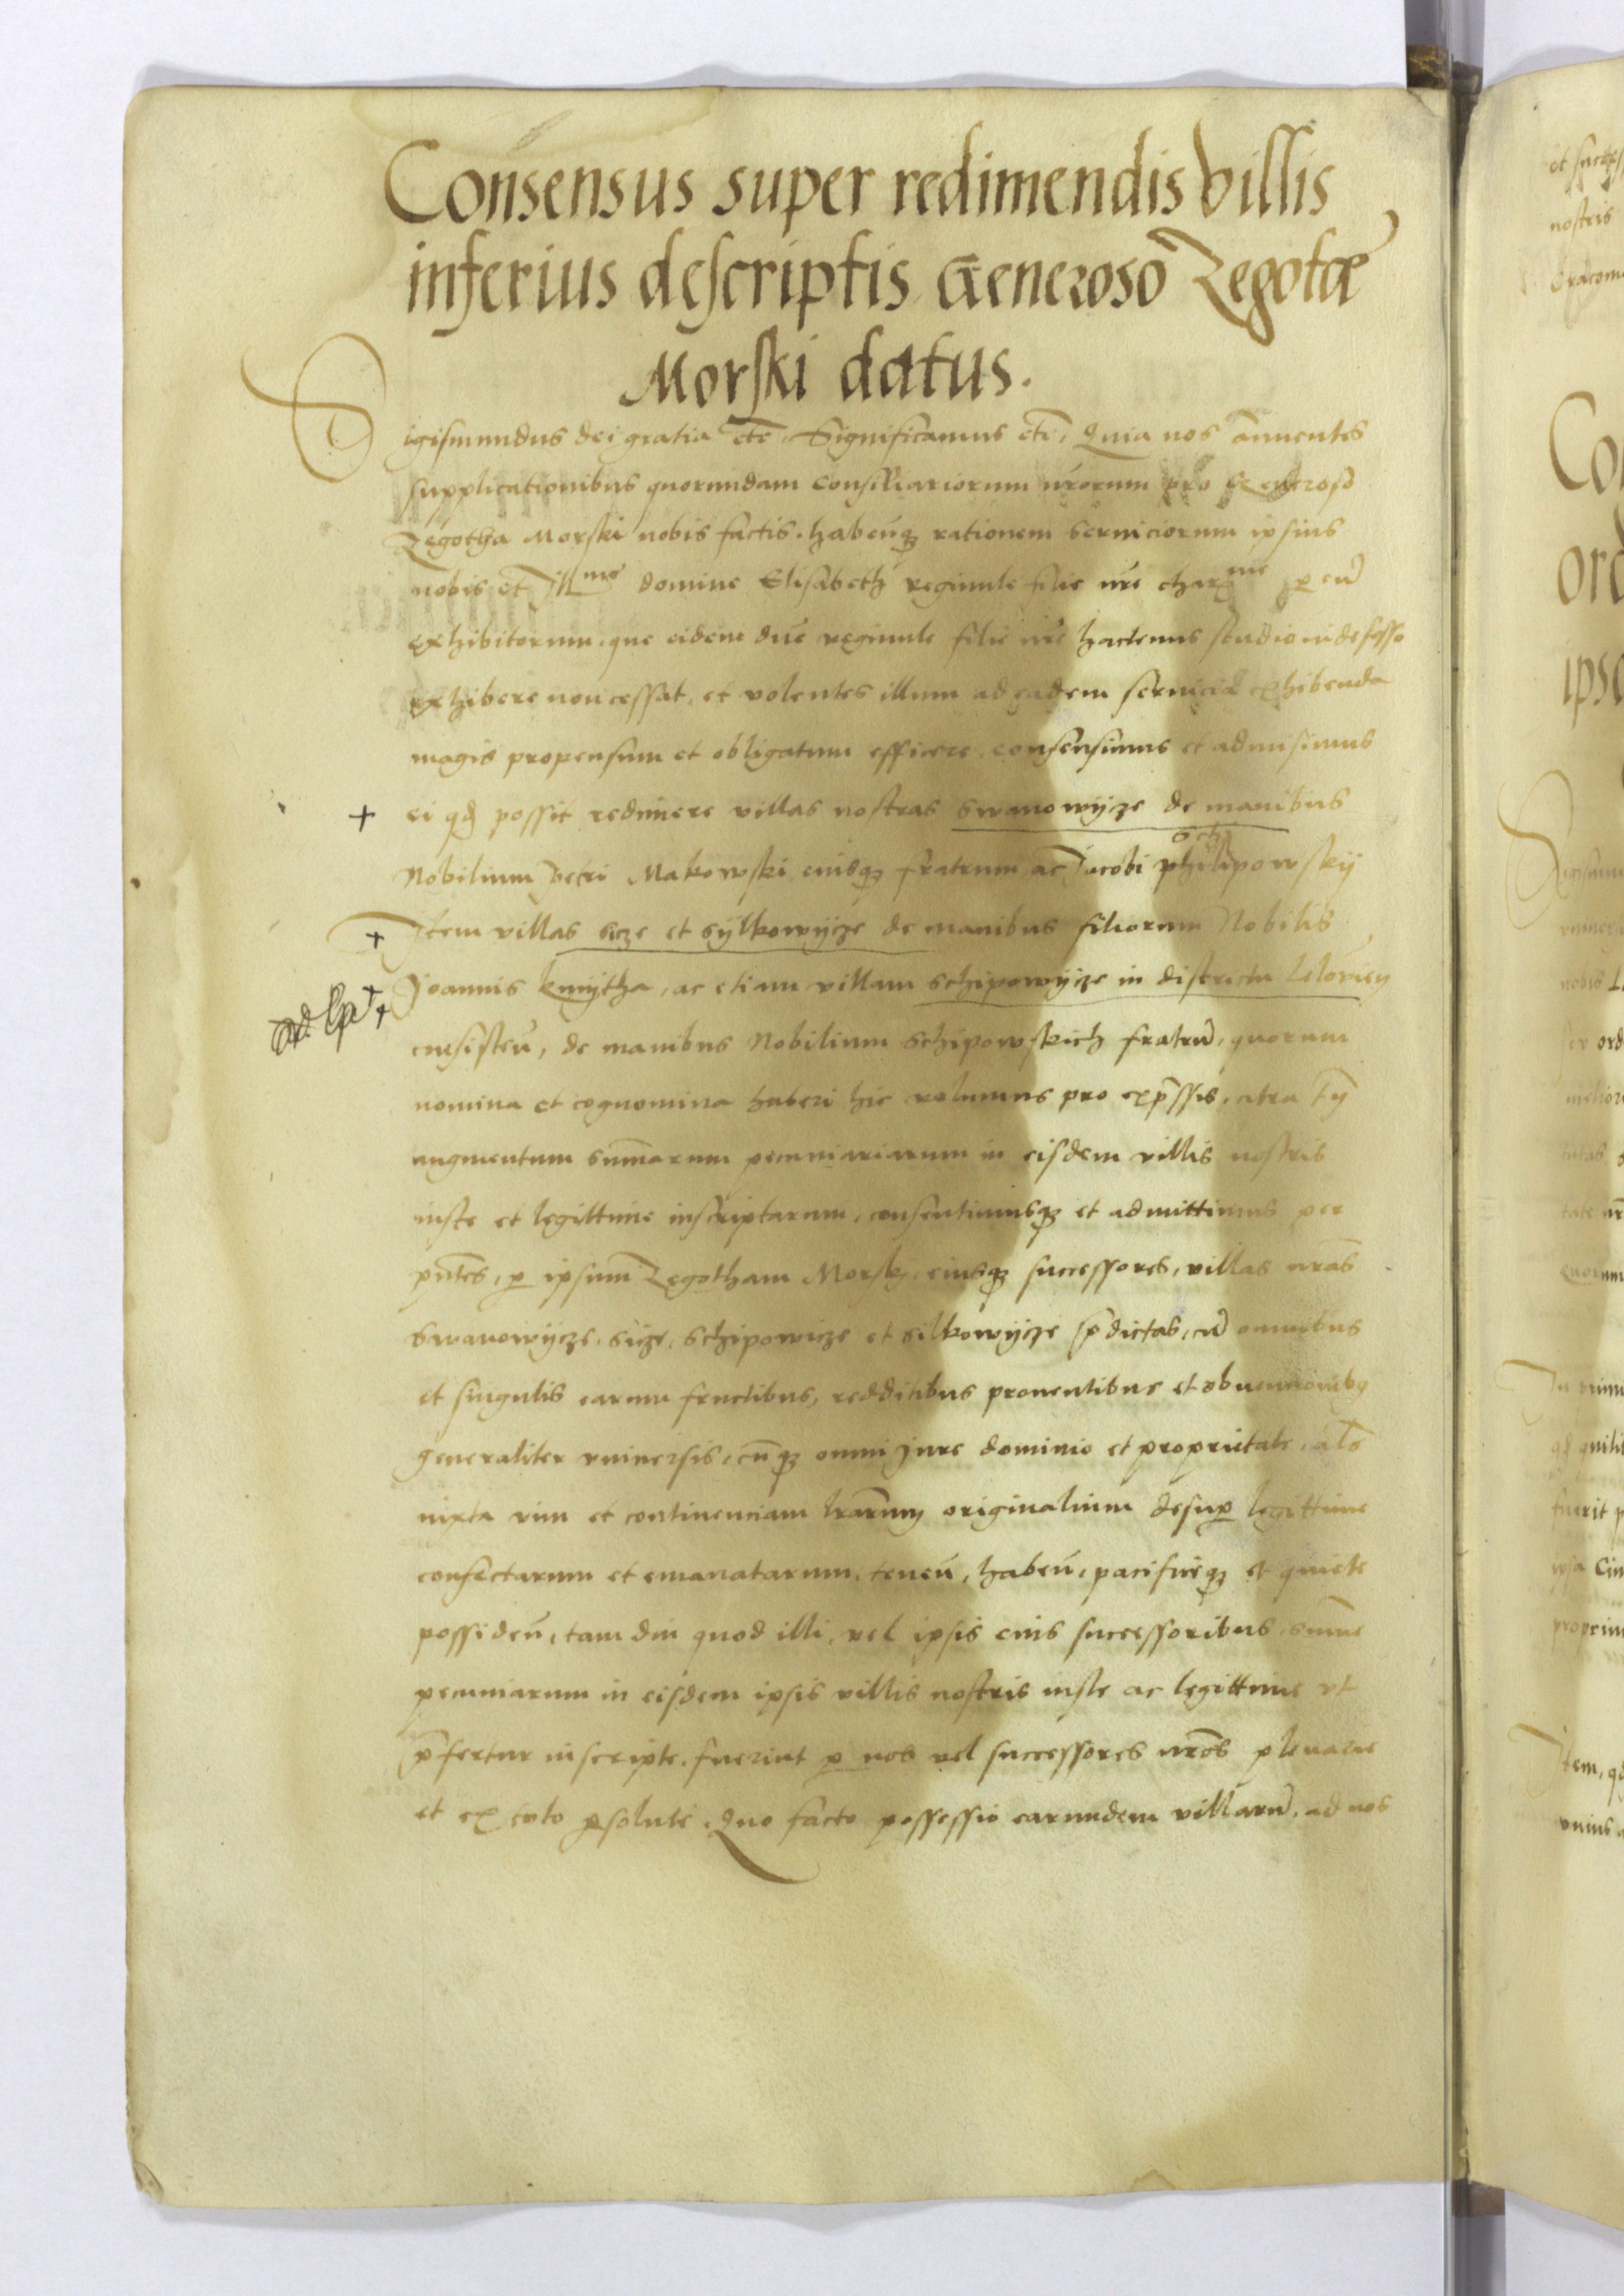 Consensus super redimendis villis
inferius descriptis Generoso Zegotæ
Morski datus.
Sigismundus dei gratia etc̄. Significamus etc̄. Quia nos añuentes
supplicationibus quorundam consiliariorum nr̄orum pro Generoso
Zegotha Morski nobis factis. habeñqꝫ rationem serviciorum ipsius
nobis et Illme domine Elisabeth reginule filie nr̄e charme ꝑ eū
exhibitorum, que eidem dn̄e reginule filie nr̄e hactenus studio indefesso
exhibere non cessat, et volentes illum ad eadem servicia exhibenda
magis propensum et obligatum efficere, consensimus et admisimus
+ ei qđ possit redimere villas nostras swanowycze de manibus
Nobilium Petri Makowski eiusqꝫ fratrum ac Jacobi philipowskij
+ Item villas sicze et sylkowycze de manibus filiorum Nobilis
Joannis kmytha, ac etiam villam schipowycze in districtu leloviens
consisteñ, de manibus Nobilium schipowskich fratrū, quorum
nomina et cognomina haberi hic volumus pro exp̄ssis, citra tn̄
augmentum sum̄arum pecuniariarum in eisdem villis nostris
iuste et legittime inscriptarum, consentimusqꝫ et admittimus per
pn̄tes, ꝑ ipsum Zegotham Morskj eiusqꝫ successores, villas nr̄as
swanowycze, sicze, schipowicze et silkowycze p̄dictas, cū omnibus
et singulis earum fructibus, redditibus proventibus et obvencionibꝫ
generaliter vniversis, cūqꝫ omni jure dominio et proprietate, al̄s
iuxta vim et continenciam lr̄arum originalium desuꝑ legittime
confectarum et emanatarum, teneñ, habeñ, pacificeqꝫ et quiete
possideñ, tam diu quod illi, vel ipsis eius successoribus, sum̄e
pecuniarum in eisdem ipsis villis nostris iuste ac legittime vt
p̄fertur inscripte, fuerint ꝑ nos vel successores nr̄os plenarie
et ex toto ꝑsolute. Quo facto possessio earundem villarū, ad nos